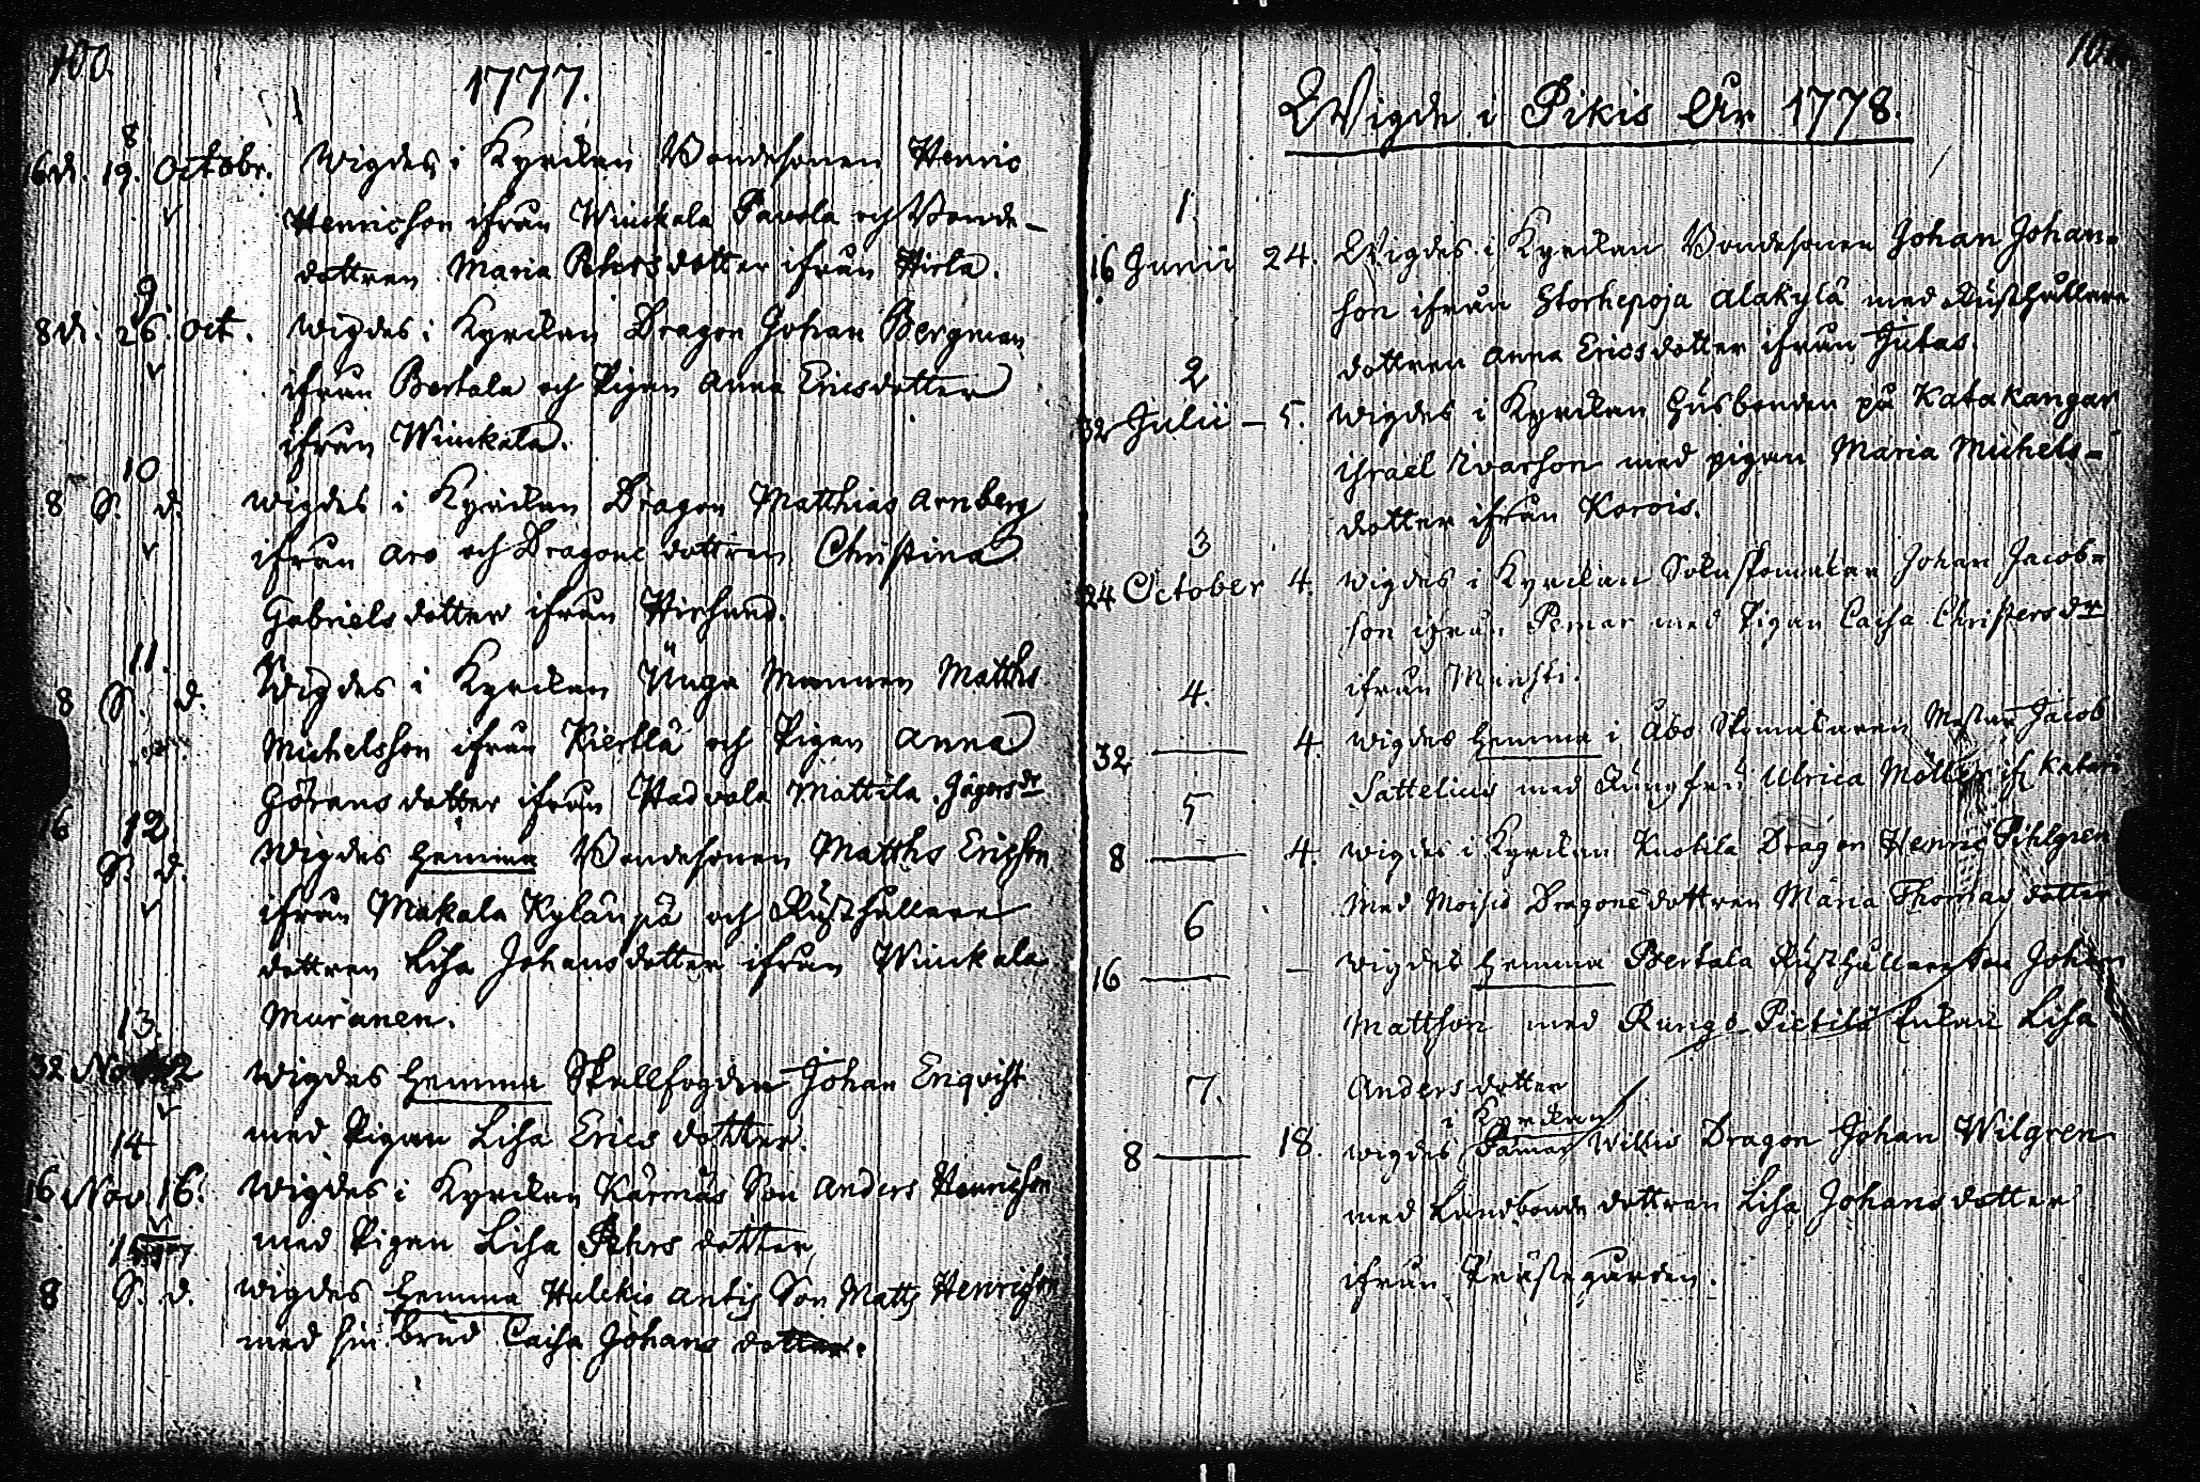 100.
1777.
8
6 d. 19. Octobr. Wigdes i Kyrckan Bondesonen Henric
Henricson ifrån Wiuckala Pavola och Bonde-
dottren Maria Pehrsdotter ifrån Hirla.
9.
8 d. 26. Oct. Wigdes i Kyrckan Dragon Johan Bergman
ifrån Bertala och Pigan Anna Ericsdotter
ifrån Wiuckala.
10
8 S. d. Wigdes i Kyrckan Dragon Matthias Arnberg
ifrån Aro och Dragone dottren Christina
Gabriels dotter ifrån
11.
8 S. d. Wigdes i Kyrckan Unge Mannen Matths
Michelsson ifrån och Pigan Anna
Görans dotter ifrån Hadvala Mattila. Jägers dr
16 12
S. d. Wigdes hemma Bondesonen Matths Ericson
ifrån Makala Kylänpä och Rusthållare
dottren Lisa Johansdotter ifrån Wiuckala
Muranen.
13.
32 2 Wigdes hemma Skallfogden Johan Enqvist
med Pigan Lisa Erics dotter.
14
16 Nov. 16. Wigdes i Kyrckan Kärmäs Son Anders Henricson
med Pigan Lisa Pehrs dotter,
8 S. d. Wigdes hemma Hulckio Antis Son Matts Henricson
med sin brud Caisa Johans dotter.
101.
Wigde i Pikis År 1778.
1.
16 Junii 24. Wigdes i Kyrckan Bondesonen Johan Johan-
son ifrån Storhepoja Alakylä med Rusthållare
dottren Anna Ericsdotter ifrån Jutas.
2
32 Julii – 5. Wigdes i Kyrckan Husbonden på Katakangar
Israel Ivarson med pigan Maria Michels-
dotter ifrån Korois.
3
24 October 4. Wigdes i Kyrckan Johan Jacob-
son ifrån Pemar med Pigan Caisa Christers dr
ifrån
4.
32 — 4. Wigdes hemma i Åbo Skomakaren Jacob
Sattelius med Jungfru Ulrica Möller
5
8 — 4. Wigdes i Kyrckan Knobila Dragon Henric Pihlgren
med Moisio Dragone dottren Maria Thomas dotter.
6
16 — – Wigdes hemma Bertala Rusthållare Son Johan
Mattson med Rungo Pietilä Enkan Lisa
Anders dotter
7.
i Kyrckan
8 — 18. Wigdes Willis Dragon Johan Wilgren
med Landbonde dottren Lisa Johans dotter
ifrån Prästegården.